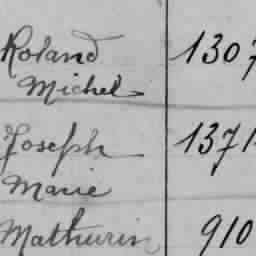 Roland 1307
Michel
Joseph 1371
Marie
Mathurin 910